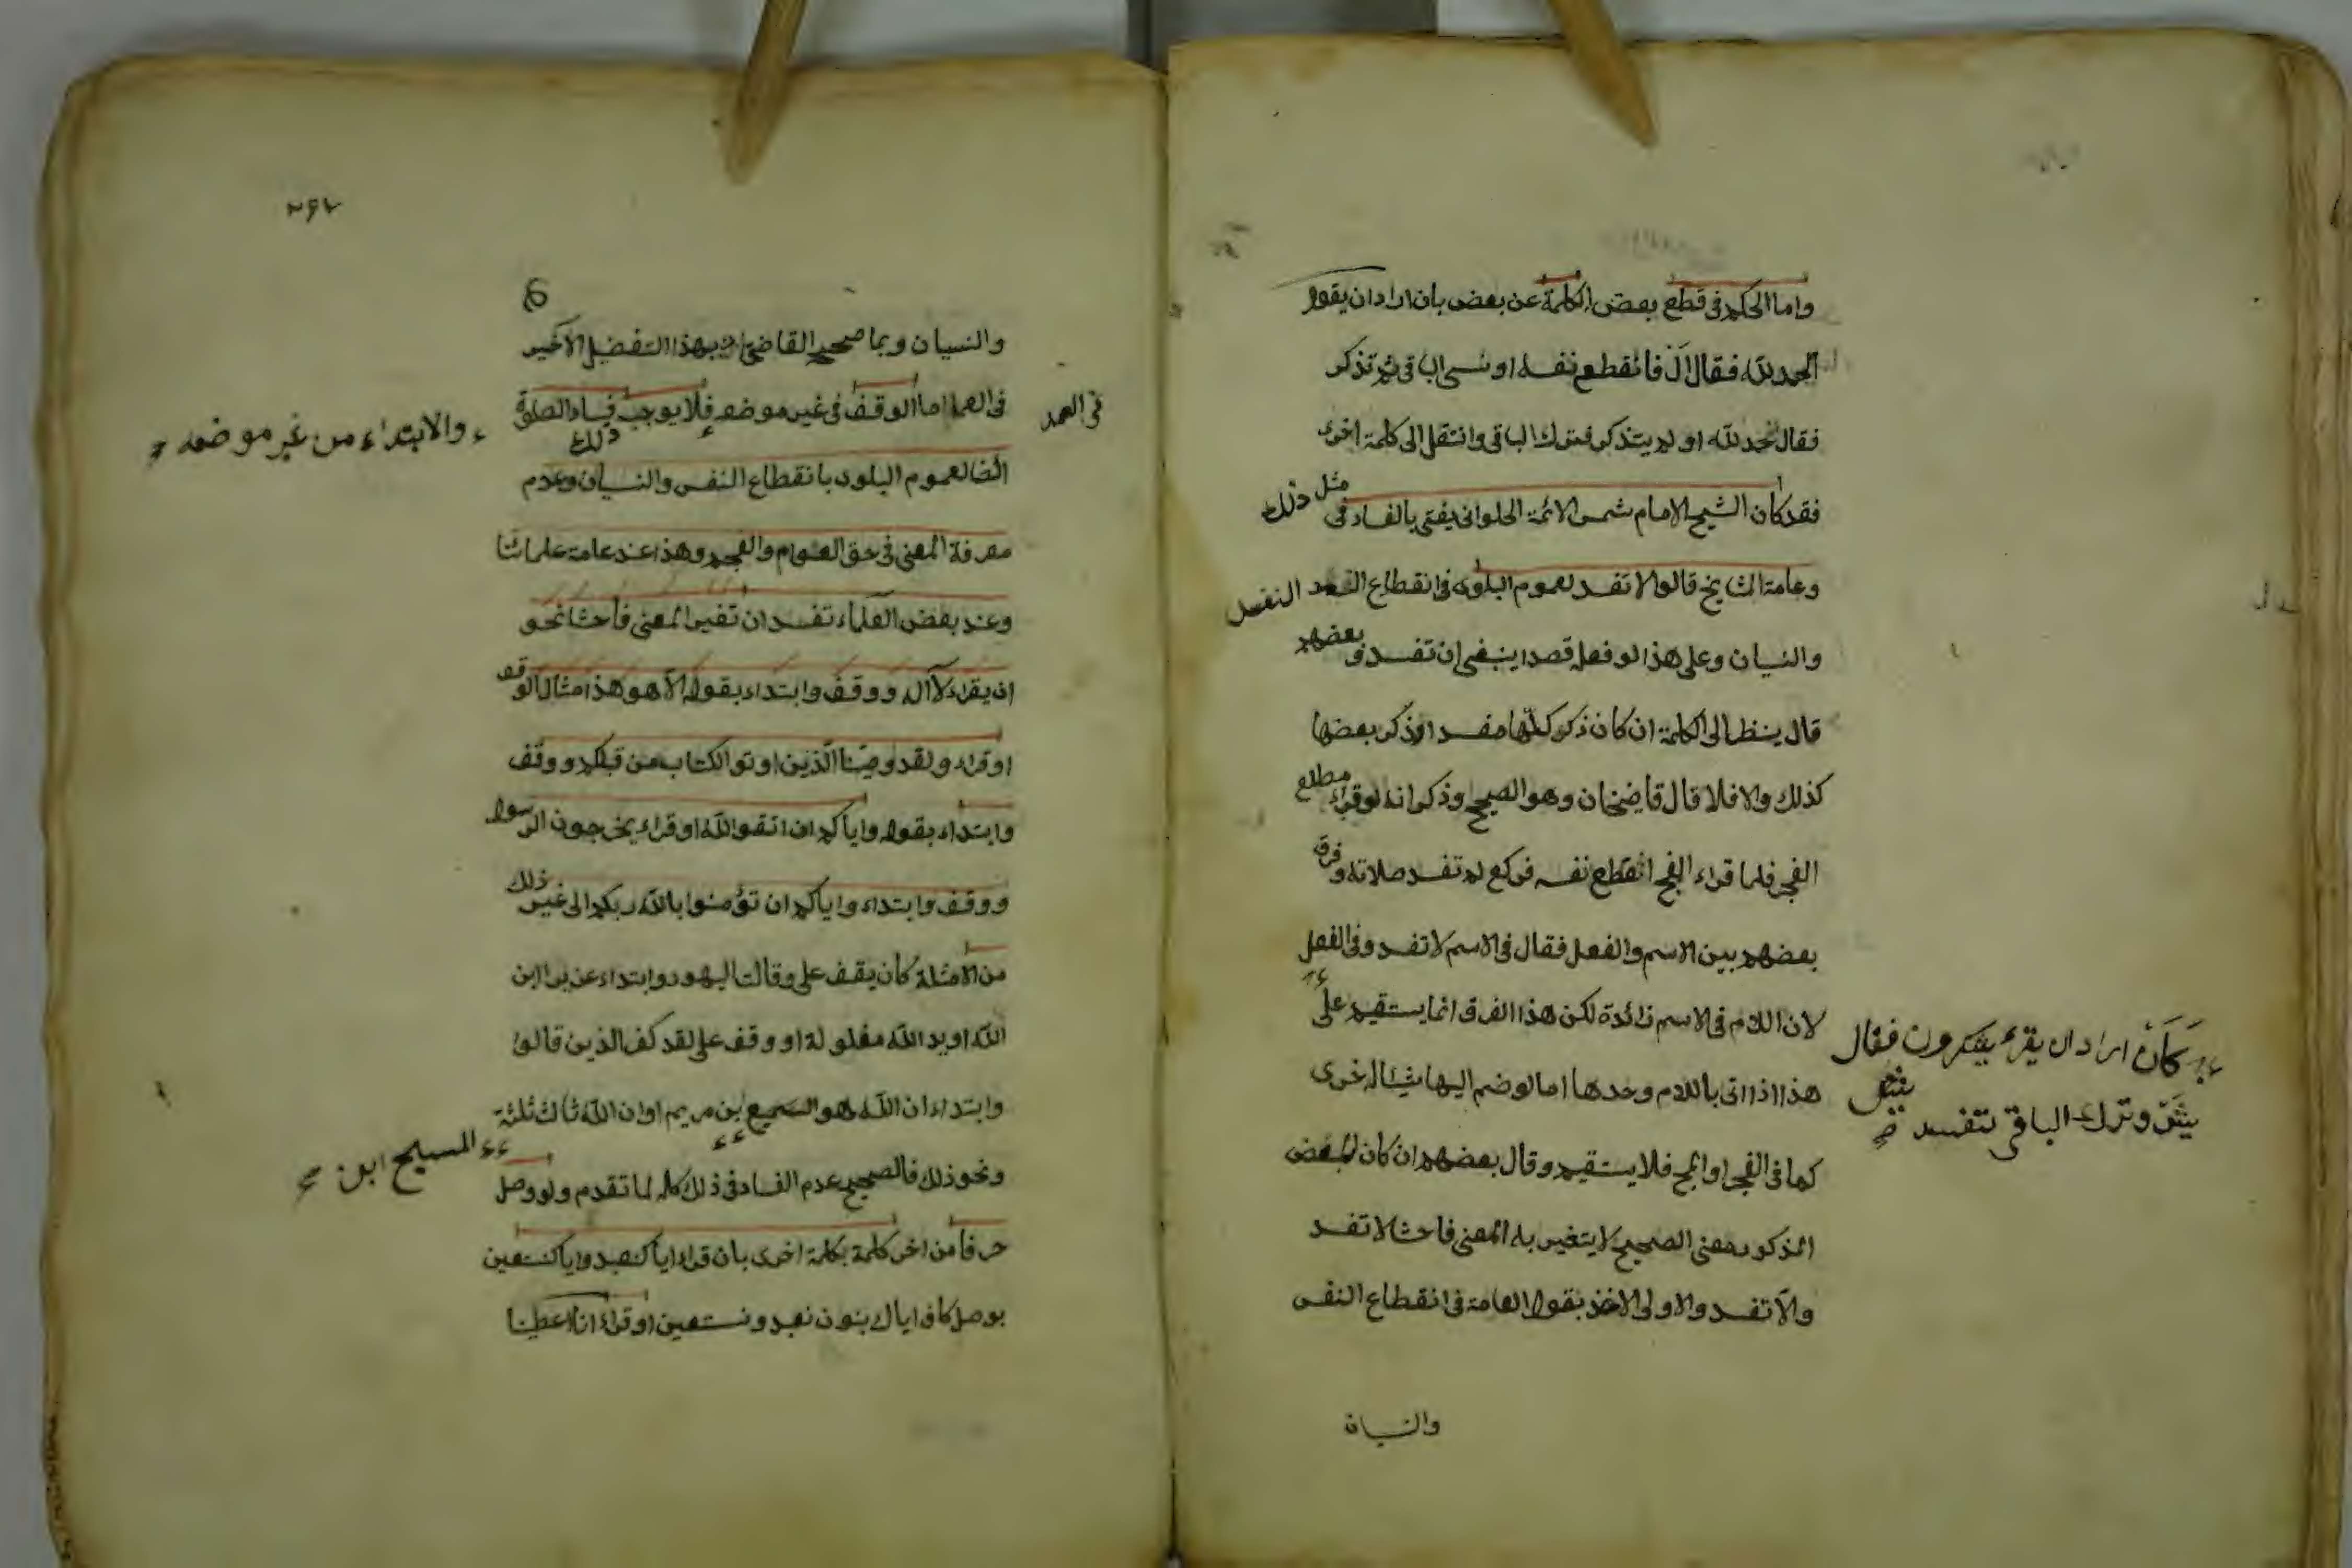 واما الحكم في قطع بعض الكلمة عن بعض بان اراد ان يقول
الحمد لله فقال ال فانقطع نفسه او نسي الباقي ثم تذكر
فقال حمد لله او لم يتذكر فترك الباقي وانتقل الى كلمة اخرى
فقد كان الشيخ الامام شمس الائمة الحلواني يفتي بالفساد في مثل ذلك
وعامة المشايخ قالوا لا تفسد لعموم البلوى في انقطاع النفس
والنسيان وعلى هذا لو فعله قصدا ينبغي ان تفسد وبعضهم
قال ينظر الى الكلمة ان كان ذكر كلها مفسدا فذكر بعضها
كذلك والا فلا قال قاضيخان وهو الصحيح وذكر انه لو قراء مطلع
الفجر فلما قراء الفج انقطع نفسه فركع لم تفسد صلاته وفرق
بعضهم بين الاسم والفعل فقال في الاسم لا تفسد وفي الفعل
لان اللام في الاسم زائدة لكن هذا الفرق انما يستقيم على
هذا اذا اتى باللام وحدها اما لو ضم اليها شيئا اخرى
كما في الفج او الح فلا يستقيم وقال بعضهم ان كان للبعض
المذكور معنى الصحيح لا يتغير به المعنى فاحشا لا تفسد
والا تفسد والاولى الاخذ بقول العامة في انقطاع النفس
والنسيان
كان اراد ان يقرء يشكرون فقال
يش وترك الباقي تفسد
٢٦٢
والنسيان وبما صححه القاضي بهذا التفضيل الاخير
في العمد اما الوقف في غير موضعه فلا يوجب فساد الصلوة ذلك
في العمد
والابتداء من غير موضعه
ايضا لعموم البلوى بانقطاع النفس والنسيان وعدم
معرفة المعنى في حق العوام والعجم وهذا عند عامة علمائنا
وعند بعض العلماء تفسد ان تغير المعنى فاحشا نحو
ان يقراء لا اله ووقف وابتداء بقوله الا هو هذا مثال الوقف
او قراء ولقد وصينا الذين اوتوا الكتاب من قبلكم ووقف
وابتداء بقوله واياكم ان اتقوا الله او قراء يخرجون الرسول
ووقف وابتداء واياكم ان تؤمنوا بالله ربكم الى غير ذلك
من الامثلة كان يقف على وقالت اليهود وابتداء عزير ابن
الله او يد الله مغلولة او وقف على لقد كفر الذين قالوا
وابتداء ان الله هو السميع ابن مريم او ان الله ثالث ثلثة
المسيح ابن
ونحو ذلك فالصحيح عدم الفساد في ذلك كله لما تقدم ولو وصل
حرفا من اخر كلمة بكلمة اخرى بان قراء اياكنعبد واياكنستعين
بوصل كاف اياك بنون نعبد ونستعين او قراء انا اعطينا